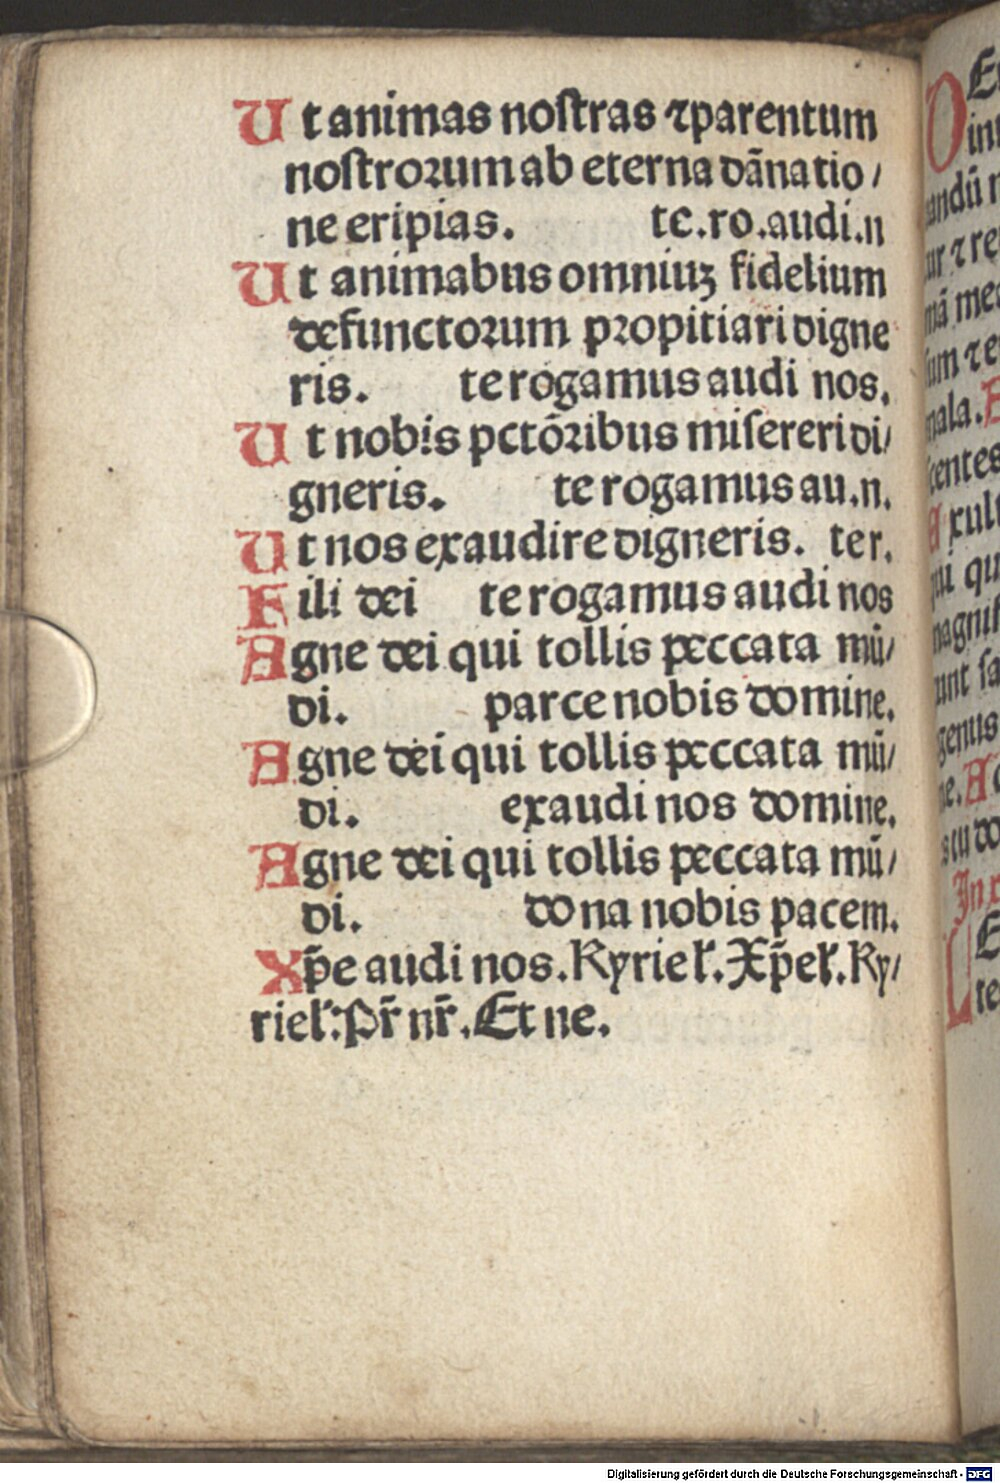 Ut animas noſtras ⁊parentum
noſtroꝛum ab eterna dãnatio/
ne eripias. te.ro.audi.n
Ut animabus omniuꝫ fidelium
defunctoꝛum pꝛopitiari digne
ris. te rogamus audi nos.
Ut nobis pctõꝛibus miſereri di/
gneris. te rogamus au.n.
Ut nos exaudire digneris. ter.
Fili dei te rogamus audi nos
Agne dei qui tollis peccata mū/
di. parce nobis domine.
Agne dei qui tollis peccata mū/
di. exaudi nos domine.
Agne dei qui tollis peccata mū/
di. dona nobis pacem.
Xp̄e audi nos. Kyriel̕. Xp̄el̕. Ky/
riel̕: Pr̄ nr̄. Et ne.
Digitalisierung gefördert durch die Deutsche Forschungsgemeinschaft - DFG